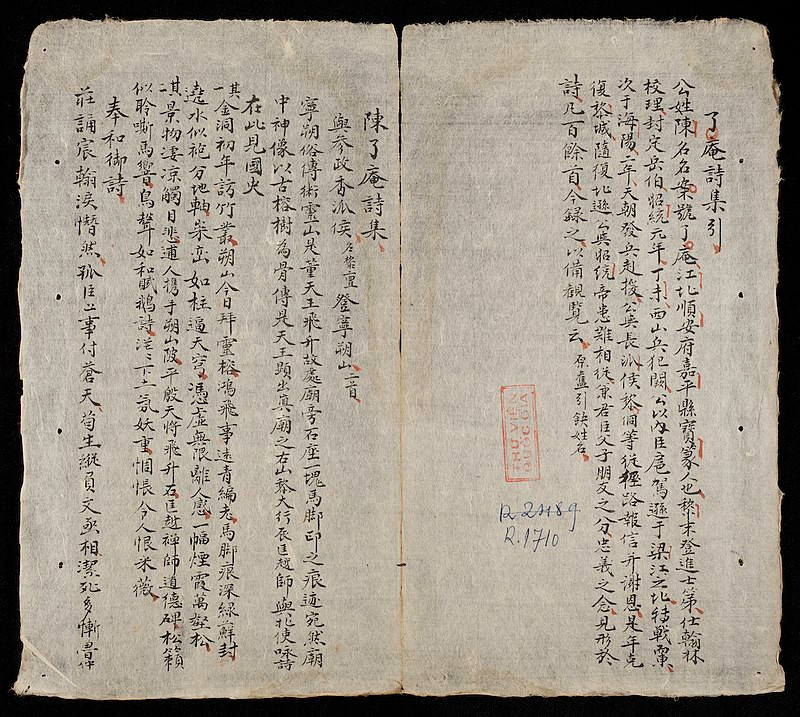 了庵詩集引
公姓陳名名案號了庵江北順安府嘉平縣寶篆人也黎末登進士第仕翰林
校理封定岳伯昭統元年丁未西山兵犯闕公以內臣扈駕遜于梁江之北轉戰粟
次于海陽二年天朝發兵赴援公與長派侯黎侗等從輕路報信并謝恩是年克
復黎城隨復北遜公與昭統帝患難相從兼君臣父子朋友之分忠義之念見形於
詩凡百餘首今録之以備觀覽云 原舊引缺姓名
THƯ VIỆN
QUỐC GIA
R.2489
R.1710
陳了庵詩集
與參政香派侯 名黎亶 登寧朔山 二首
寧朔俗傳術靈山是董天王飛升故處廟旁石座一塊馬脚印之痕迹宛然廟
中神像以古榕樹為骨傳是天王顕出真廟之右山黎大行辰匡越師與北使咏詩
在此見國史
其一 金洞初年訪竹叢朔山今日拜靈榕鴻飛事遠青編老馬脚痕深緑蘚封
遶水似袍分地軸峯巒如柱逼天穹憑虛無限離人感一幅煙霞萬壑松
其二 景物凄凉觸目悲逋人携手朔山陂平殷天將飛升石匡越禪師道德碑松籟
似聆嘶馬響鳥聲如和賦鵝詩茫茫下土氛妖重惆悵今人恨采薇
奉和御詩
莊誦宸翰淚潸然孤臣心事付蒼天荀生縱負文丞相潔死多慚